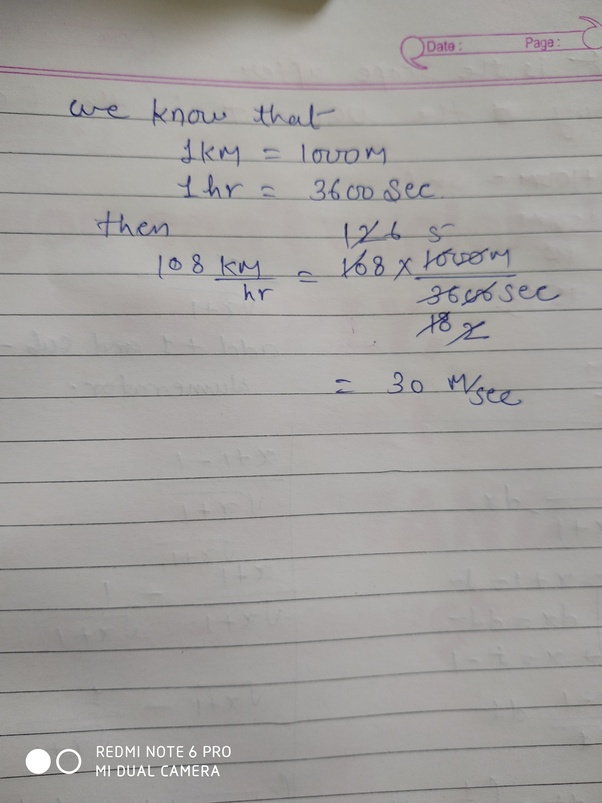 Date : Page :
we know that
1 km = 1000 m
1 hr = 3600 Sec.
then 12 6 5
108 km/hr = 108 × 1000m/3600 sec
18 2
= 30 m/sec
REDMI NOTE 6 PRO
MI DUAL CAMERA